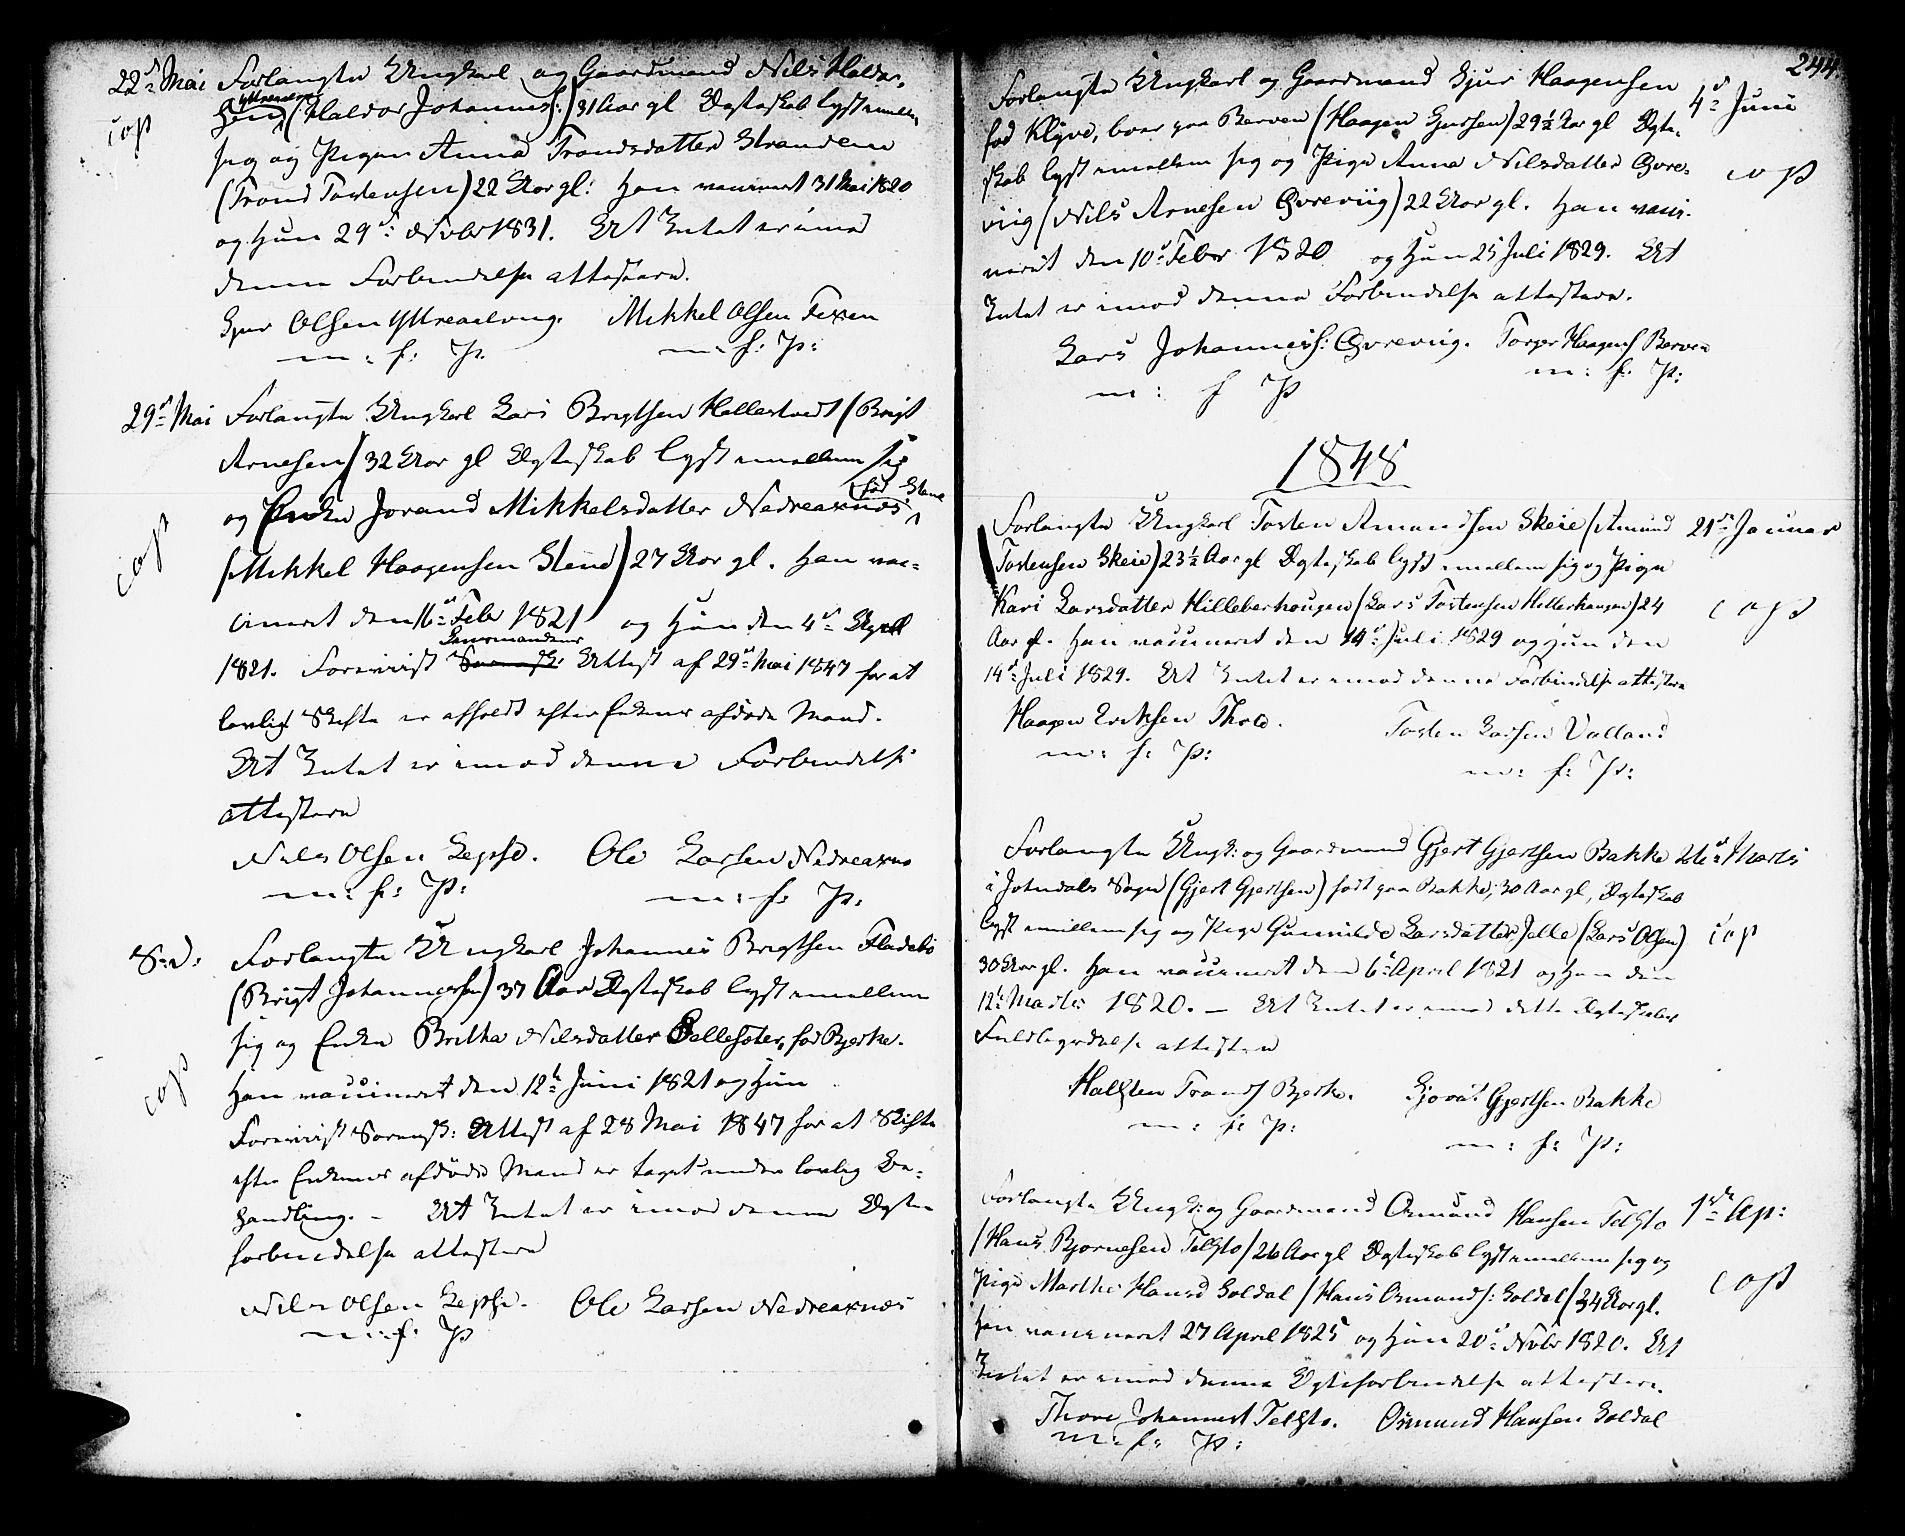 22d Mai Forlangte Ungkarl og Gaardmand Nils Haldor-
sen Yttreaalvig (Haldor Johanness:) 31 Aar gl Ægteskab lyst imellem
cop
sig og Pigen Anna Trondsdatter Strandene
(Trond Tostensen) 22 Aar gl: Han vaccineret 31 Mai 1820
og Hun 29d: Novbr 1831. At Intet er imod
denne Forbindelse attestere.
Gjur Olsen Yttreaalvig. Mikkel Olsen Texen
m: f: P. m: f: P:
29d Mai Forlangte Ungkarl Lars Brigtsen Hallestvedt (Brigt
Arnesen) 32 Aar gl Ægteskab lyst imellem sig
og Enken Jorand Mikkelsdatter Nedreaxnøs fød Stene
cop
(Mikkel Haagensen Stene) 27 Aar gl. Han vac-
cineret den 16d Febr 1821 og Hun den 4d April
1821. Foreviist Lensmandens Attest af 29d Mai 1847 for at
lovligt Skifte er afholdt efter Enkens afdøde Mand.
At Intet er imod denne Forbindelse
attestere
Nils Olsen Lepsø. Ole Larsen Nedreaxnøs
m: f: P: m: f: P:
S: D: Forlangte Ungkarl Johannes Brigtsen Fladebø
(Brigt Johannessen) 37 Aar Ægteskab lyst imellem
sig og Enke Britha Nilsdatter Belleseter, fød Bjerke.
cop
Han vaccineret den 12te Juni 1821 og Hun
Foreviist Sorensk: Attest af 28 Mai 1847 for at Skifte
efter Enkens afdøde Mand er taget under lovlig Be-
handling. – At Intet er imod denne Ægte
forbindelse attestere
Nils Olsen Lepsø. Ole Larsen Nedreaxnøs
m: f: P
244.
Forlangte Ungkarl og Gaardmand Gjur Haagensen 4d Juni
fød Klyve, boer paa Berven (Haagen Gjursen) 29½ Aar gl Ægte-
skab lyst imellem sig og Pige Anna Nilsdatter Qvre- cop
viig (Nils Arnesen Qvreviig) 22 Aar gl. Han vacci-
neret den 10d Febr 1820 og Hun 25 Juli 1829. At
Intet er imod denne Forbindelse attestere.
Lars Johanness: Qvreviig. Torger Haagens Berven
m: f P m: f: P:
1848
Forlangte Ungkarl Tosten Amundsen Skeie (Amund 21de Januar
Tostensen Skeie) 23½ Aar gl Ægteskab lyst imellem sig og Pigen
Kari Larsdatter Hilleberhougen (Lars Tostensen Hilleberhaugen) 24 cop
Aar gl. Han vaccineret den 14d Juli 1829 og Hun den
14d Juli 1829. At Intet er imod denne Forbindelse attestere
Haagen Eriksen Thvedt. Tosten Larsen Valland
m: f: P: m: f: P:
Forlangte Ungk: og Gaardmand Gjert Gjertsen Bakke 26d Marts
i Johndals Sogn (Gjert Gjertsen) født paa Bakke, 30 Aar gl, Ægteskab
lyst imellem sig og Pige Gunnilde Larsdatter Jelle (Lars Olsen) cop
30 Aar gl. Han vaccineret den 6d April 1821 og Hun den
12te Marts 1820. – At Intet er imod dette Ægteskabs
Fuldbyrdelse attestere
Halsten Tronds Bjerke. Sjovat Gjertsen Bakke
m: f: P: m: f: P:
Forlangte Ungk: og Gaardmand Osmund Hansen Telstø 1ste Ap:
(Hans Bjørnesen Telstø) 26 Aar gl Ægteskab lyst imellem sig og
Pige Marthe Hansd Soldal (Hans Osmunds: Soldal) 34 Aar gl. cop
Han vaccineret 27 April 1825 og Hun 20d Novbr 1820. At
Intet er imod denne Ægteforbindelse attestere.
Thore Johannes Telstø. Osmund Hansen Soldal
m: f: P: